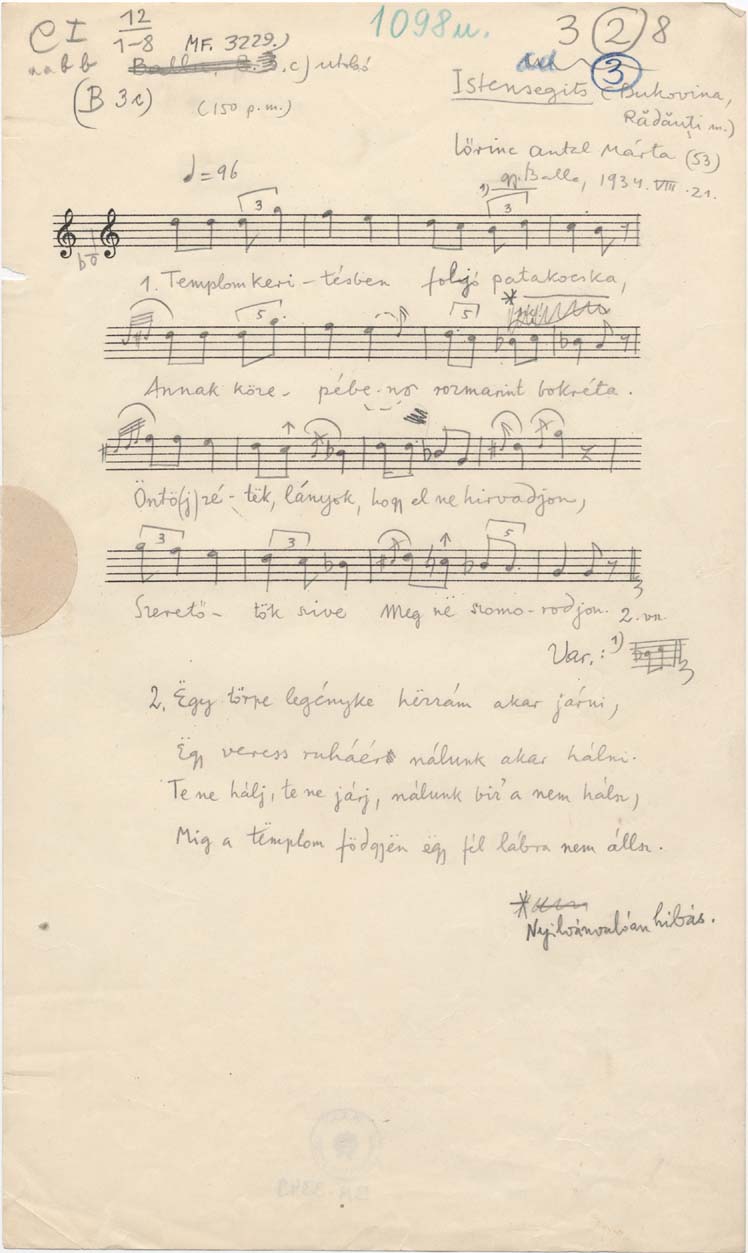 C I 12/1-8 MF. 3229.) 1098u. 3 2 8
utolsó 3
Istensegits (Bukovina,
(B 3c) (150 p.m.) Rădăuți m.)
Lőrinc Antal Márta (53)
♩=96 gy. Balla, 1934. VIII. 21.
1)
3 3
1. Templomkeri-tésben folyó patakocska,
*
5 5
Annak köze-pébe-nő rozmarint bokréta.
Öntö(j)zé-tëk, lányok, hogy el ne hirvadjon,
3 3 5
Szerető-tök szive Meg në szomo-rodjon. 2. vn.
Var.: 1)
2. Ëgy törpe legényke hëzzám akar járni,
Ëgy veress ruháér nálunk akar hálni.
Te ne hálj, te ne járj, nálunk biz' a nem hálsz,
Mig a tëmplom födgyén ëgy fél lábra nem állsz.
*
Nyilvánvalóan hibás.